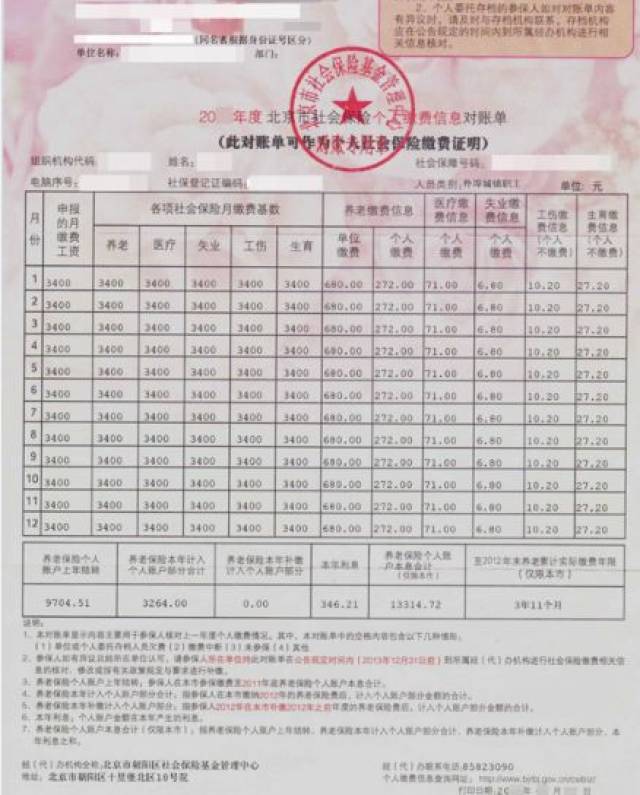 2. 个人委托存档的参保人如对对账单内容
有异议时, 请及时与存档机构联系, 存档机构
应在公告规定的时间内到所属经办机构进行相
关信息核对。
(同名者根据身份证号区分)
单位名称: 部门:
北京市社会保险基金管理中心
对账专用章
20 年度 北京市社会保险个人缴费信息对账单
(此对账单可作为个人社会保险缴费证明)
组织机构代码: 姓名: 社会保障号码:
电脑序号: 社保登记证编码: 人员类别: 外埠城镇职工 单位: 元
月份 申报的月缴费工资 各项社会保险月缴费基数 养老缴费信息 医疗缴费信息 失业缴费信息 工伤缴费信息(个人不缴费) 生育缴费信息(个人不缴费)
养老 医疗 失业 工伤 生育 单位缴费 个人缴费 个人缴费 个人缴费
1 3400 3400 3400 3400 3400 3400 680.00 272.00 71.00 6.80 10.20 27.20
2 3400 3400 3400 3400 3400 3400 680.00 272.00 71.00 6.80 10.20 27.20
3 3400 3400 3400 3400 3400 3400 680.00 272.00 71.00 6.80 10.20 27.20
4 3400 3400 3400 3400 3400 3400 680.00 272.00 71.00 6.80 10.20 27.20
5 3400 3400 3400 3400 3400 3400 680.00 272.00 71.00 6.80 10.20 27.20
6 3400 3400 3400 3400 3400 3400 680.00 272.00 71.00 6.80 10.20 27.20
7 3400 3400 3400 3400 3400 3400 680.00 272.00 71.00 6.80 10.20 27.20
8 3400 3400 3400 3400 3400 3400 680.00 272.00 71.00 6.80 10.20 27.20
9 3400 3400 3400 3400 3400 3400 680.00 272.00 71.00 6.80 10.20 27.20
10 3400 3400 3400 3400 3400 3400 680.00 272.00 71.00 6.80 10.20 27.20
11 3400 3400 3400 3400 3400 3400 680.00 272.00 71.00 6.80 10.20 27.20
12 3400 3400 3400 3400 3400 3400 680.00 272.00 71.00 6.80 10.20 27.20
养老保险个人账户上年结转 养老保险本年计入个人账户部分合计 养老保险本年补缴计入个人账户部分 本年利息 养老保险个人账户本息合计(仅限本市) 至2012年末养老累计实际缴费年限(仅限本市)
9704.51 3264.00 0.00 346.21 13314.72 3年11个月
说明:
1. 本对账单显示内容主要用于参保人核对上一年度个人缴费情况。其中, 本对账单中的空格内容包含以下几种情形:
(1)单位或个人委托存档人员欠费 (2)缴费中断 (3)未参保 (4)其他
2. 参保人如有异议且经所在单位认可, 请参保人所在单位持此对账单在公告规定时间内(2013年12月31日前)到所属经(代)办机构进行社会保险缴费相关信
息的核对、修改或按有关政策规定与要求进行补缴。
3. 养老保险个人账户上年结转: 参保人在本市参保缴费至2011年底养老保险个人账户本息合计。
4. 养老保险本年计入个人账户部分合计: 指参保人在本市缴纳2012年的养老保险费后, 计入个人账户部分金额的合计。
5. 养老保险本年补缴计入个人账户部分: 指参保人2012年在本市补缴2012年之前年度的养老保险费后, 计入个人账户部分金额的合计。
6. 本年利息: 个人账户金额在本年产生的利息。
7. 养老保险个人账户本息合计(仅限本市): 指养老保险个人账户上年结转、养老保险本年计入个人账户部分合计、养老保险本年补缴计入个人账户部分、本
年利息之和。
经(代)办机构全称: 北京市朝阳区社会保险基金管理中心 经(代)办联系电话: 85823090
地址: 北京市朝阳区十里堡北区10号院 个人缴费信息查询网址: http://www.bjrbj.gov.cn/csibiz/
打印日期: 20 年 月 日